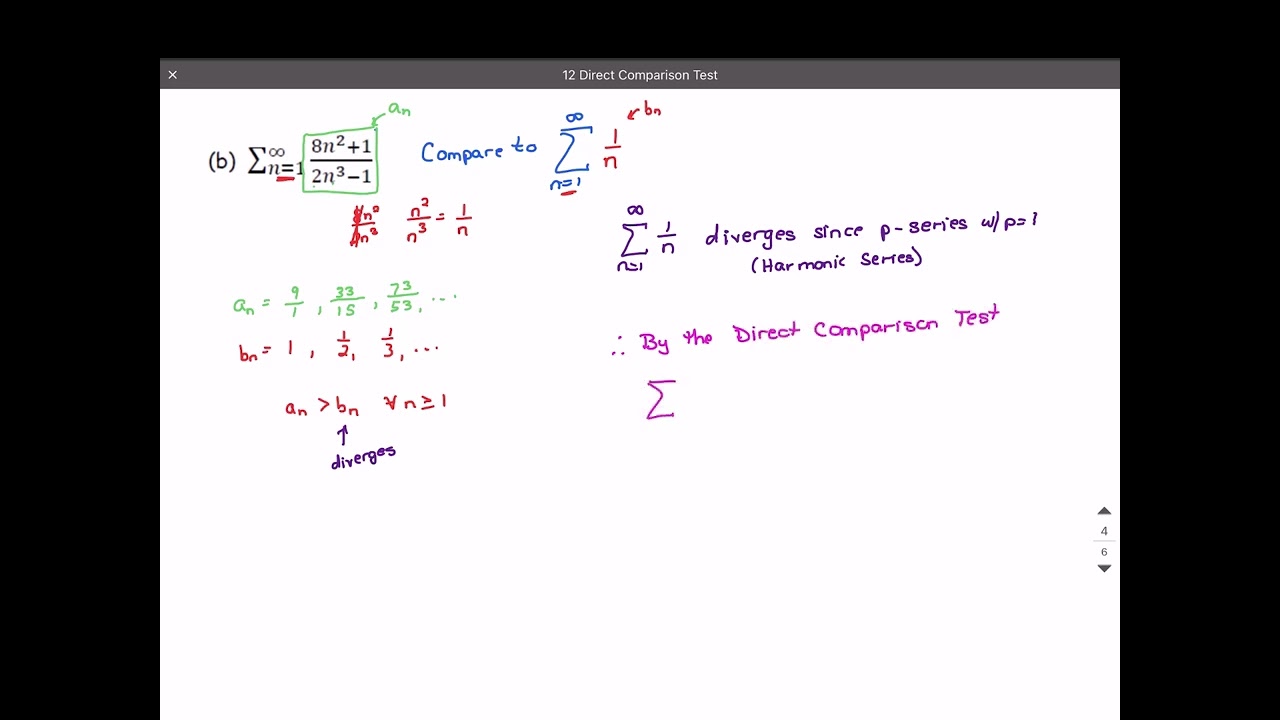 × 12 Direct Comparison Test
aₙ
(b) ∑ₙ₌₁^∞ (8n²+1)/(2n³−1) Compare to ∑ₙ₌₁^∞ 1/n bₙ
8n²/2n³ n²/n³ = 1/n
∑ₙ₌₁^∞ 1/n diverges since p-series w/ p=1
(Harmonic Series)
aₙ = 9/1, 33/15, 73/53, ...
bₙ = 1, 1/2, 1/3, ...
∴ By the Direct Comparison Test
∑
aₙ > bₙ ∀ n ≥ 1
↑
diverges
4
6